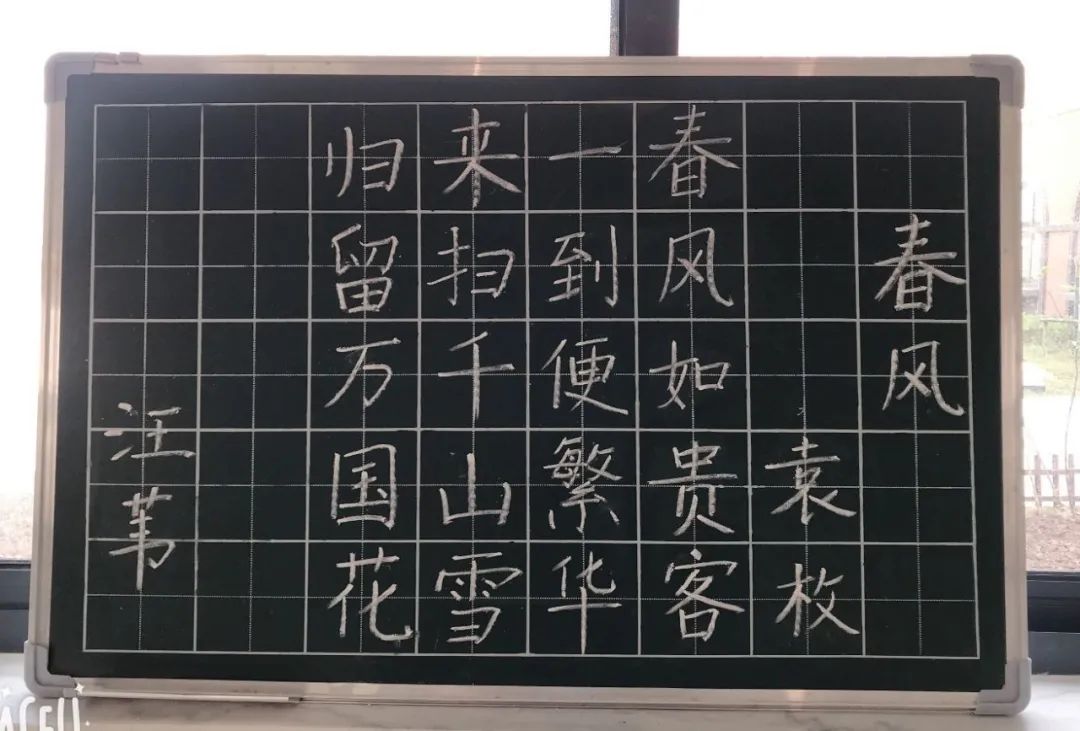 春风
袁枚
春风如贵客
一到便繁华
来扫千山雪
归留万国花
汪苇